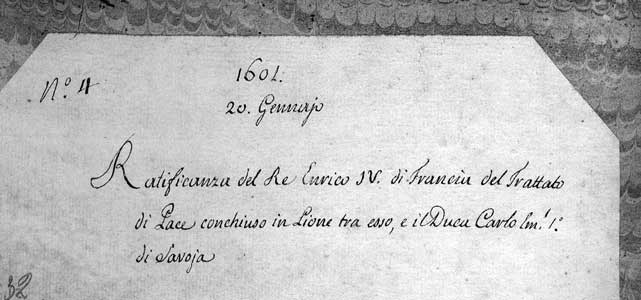 N.º 4
1601.
20. Gennajo
Ratificanza del Re Enrico IV. di Francia del Trattato
di Pace conchiuso in Lione tra esso, e il Duca Carlo Em.l 1.º
di Savoja
32